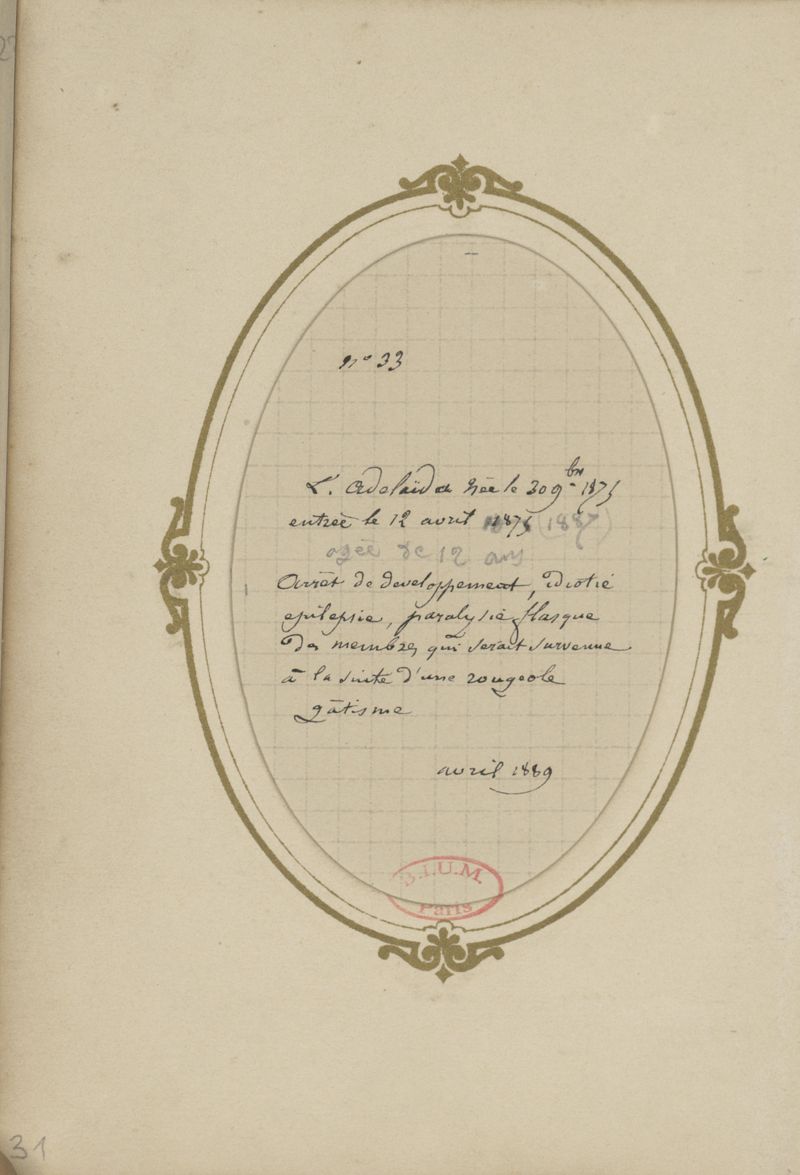 n° 33
L. Adelaïde née le 30 9bre 1875
entrée le 12 avril 1875 (1887)
agée de 12 ans
Arrêt de developpement, idiotie
epilepsie, paralysie flasque
des membres qui serait survenue
à la suite d'une rougeole
gâtisme
avril 1889
B.I.U.M.
Paris
31